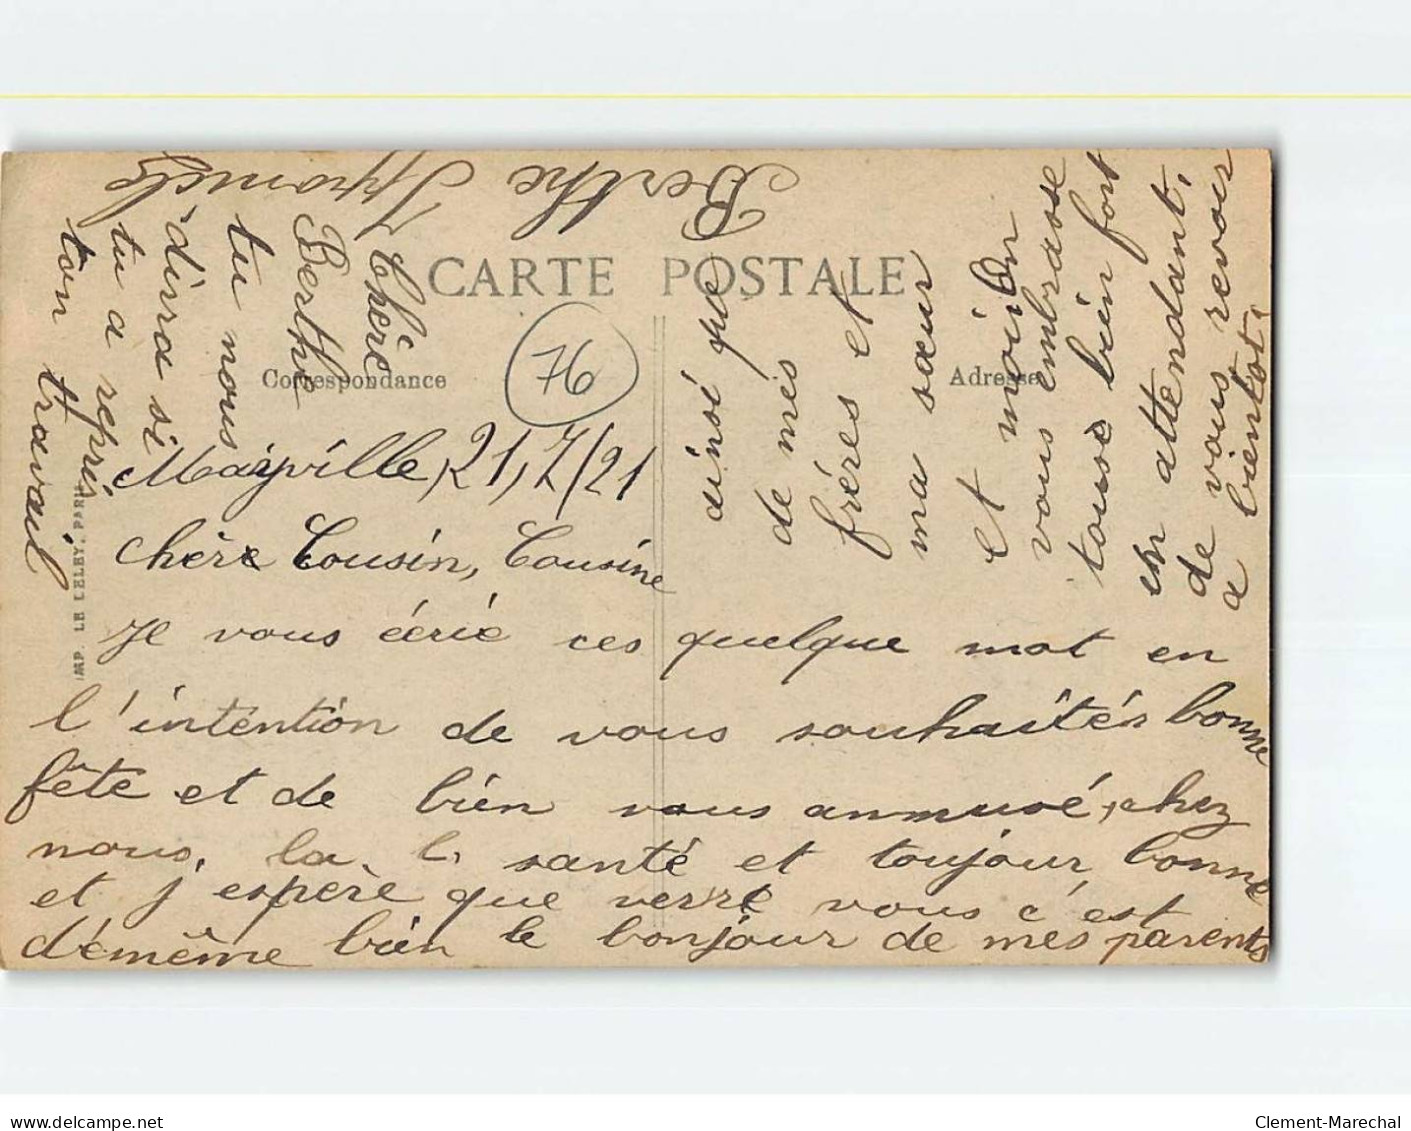 CARTE POSTALE
Correspondance
Adresse
76
IMP. LE DELEY, PARIS
Mayville, 21,7/21
chère Cousin, Cousine
Je vous écrie ces quelque mot en
l'intention de vous souhaités bonne
fête et de bien vous anmusé, chez
nous, la santé et toujour bonne
et j'espère que verre vous c'est
démême bien le bonjour de mes parents
ainsi que
de mes
fréres et
ma sœur
et moi
vous embrasse
tous bien fort
en attendant,
de vous revoir
a bientot
Chère
Berthe
tu nous
dira si
tu a repris
ton travail
Berthe
www.delcampe.net
Clement-Marechal